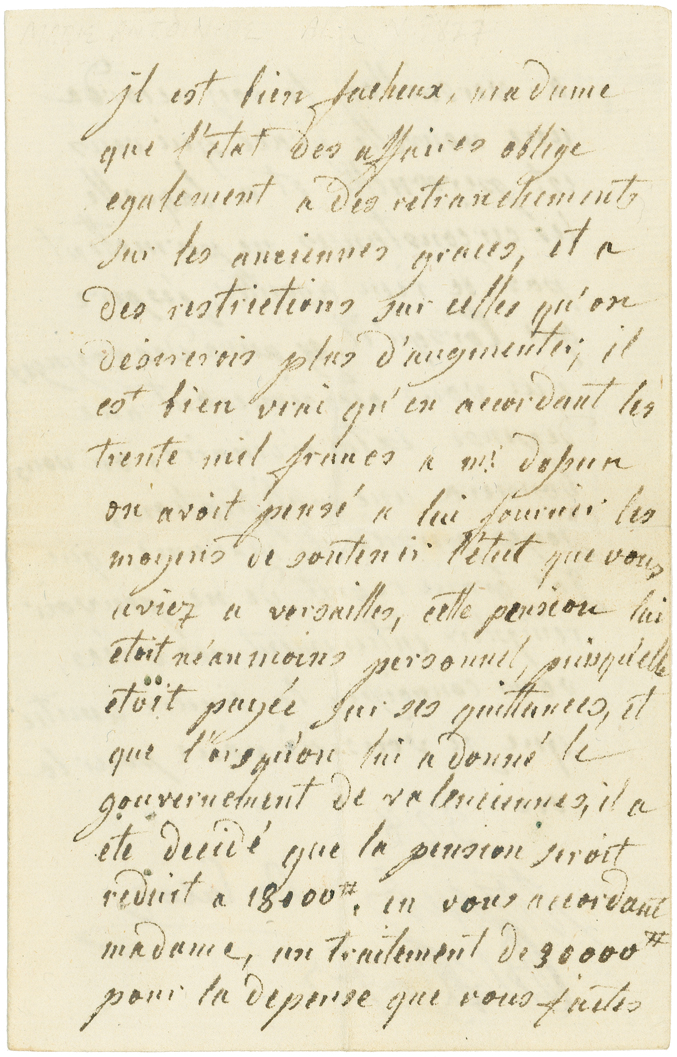 jl est bien facheux, madame
que l'etat des affaires oblige
egalement a des retranchements
sur les anciennes graces, et a
des restrictions sur celles qu'on
desirerois plus d'augmenter; il
est bien vrai qu'en accordant les
trente mil francs a mr. dossun
on avoit pensé a lui fournir les
moyens de soutenir l'état que vous
aviez a versailles, cette pension lui
etoit néanmoins personnel, puisqu'elle
etoit payée sur ses quittances, et
que l'orsqu'on lui a donné le
gouvernement de valenciennes, il a
ete decidé que la pension seroit
reduit a 18000#. en vous accordant
madame, un traitement de 30000#
pour la depense que vous faites